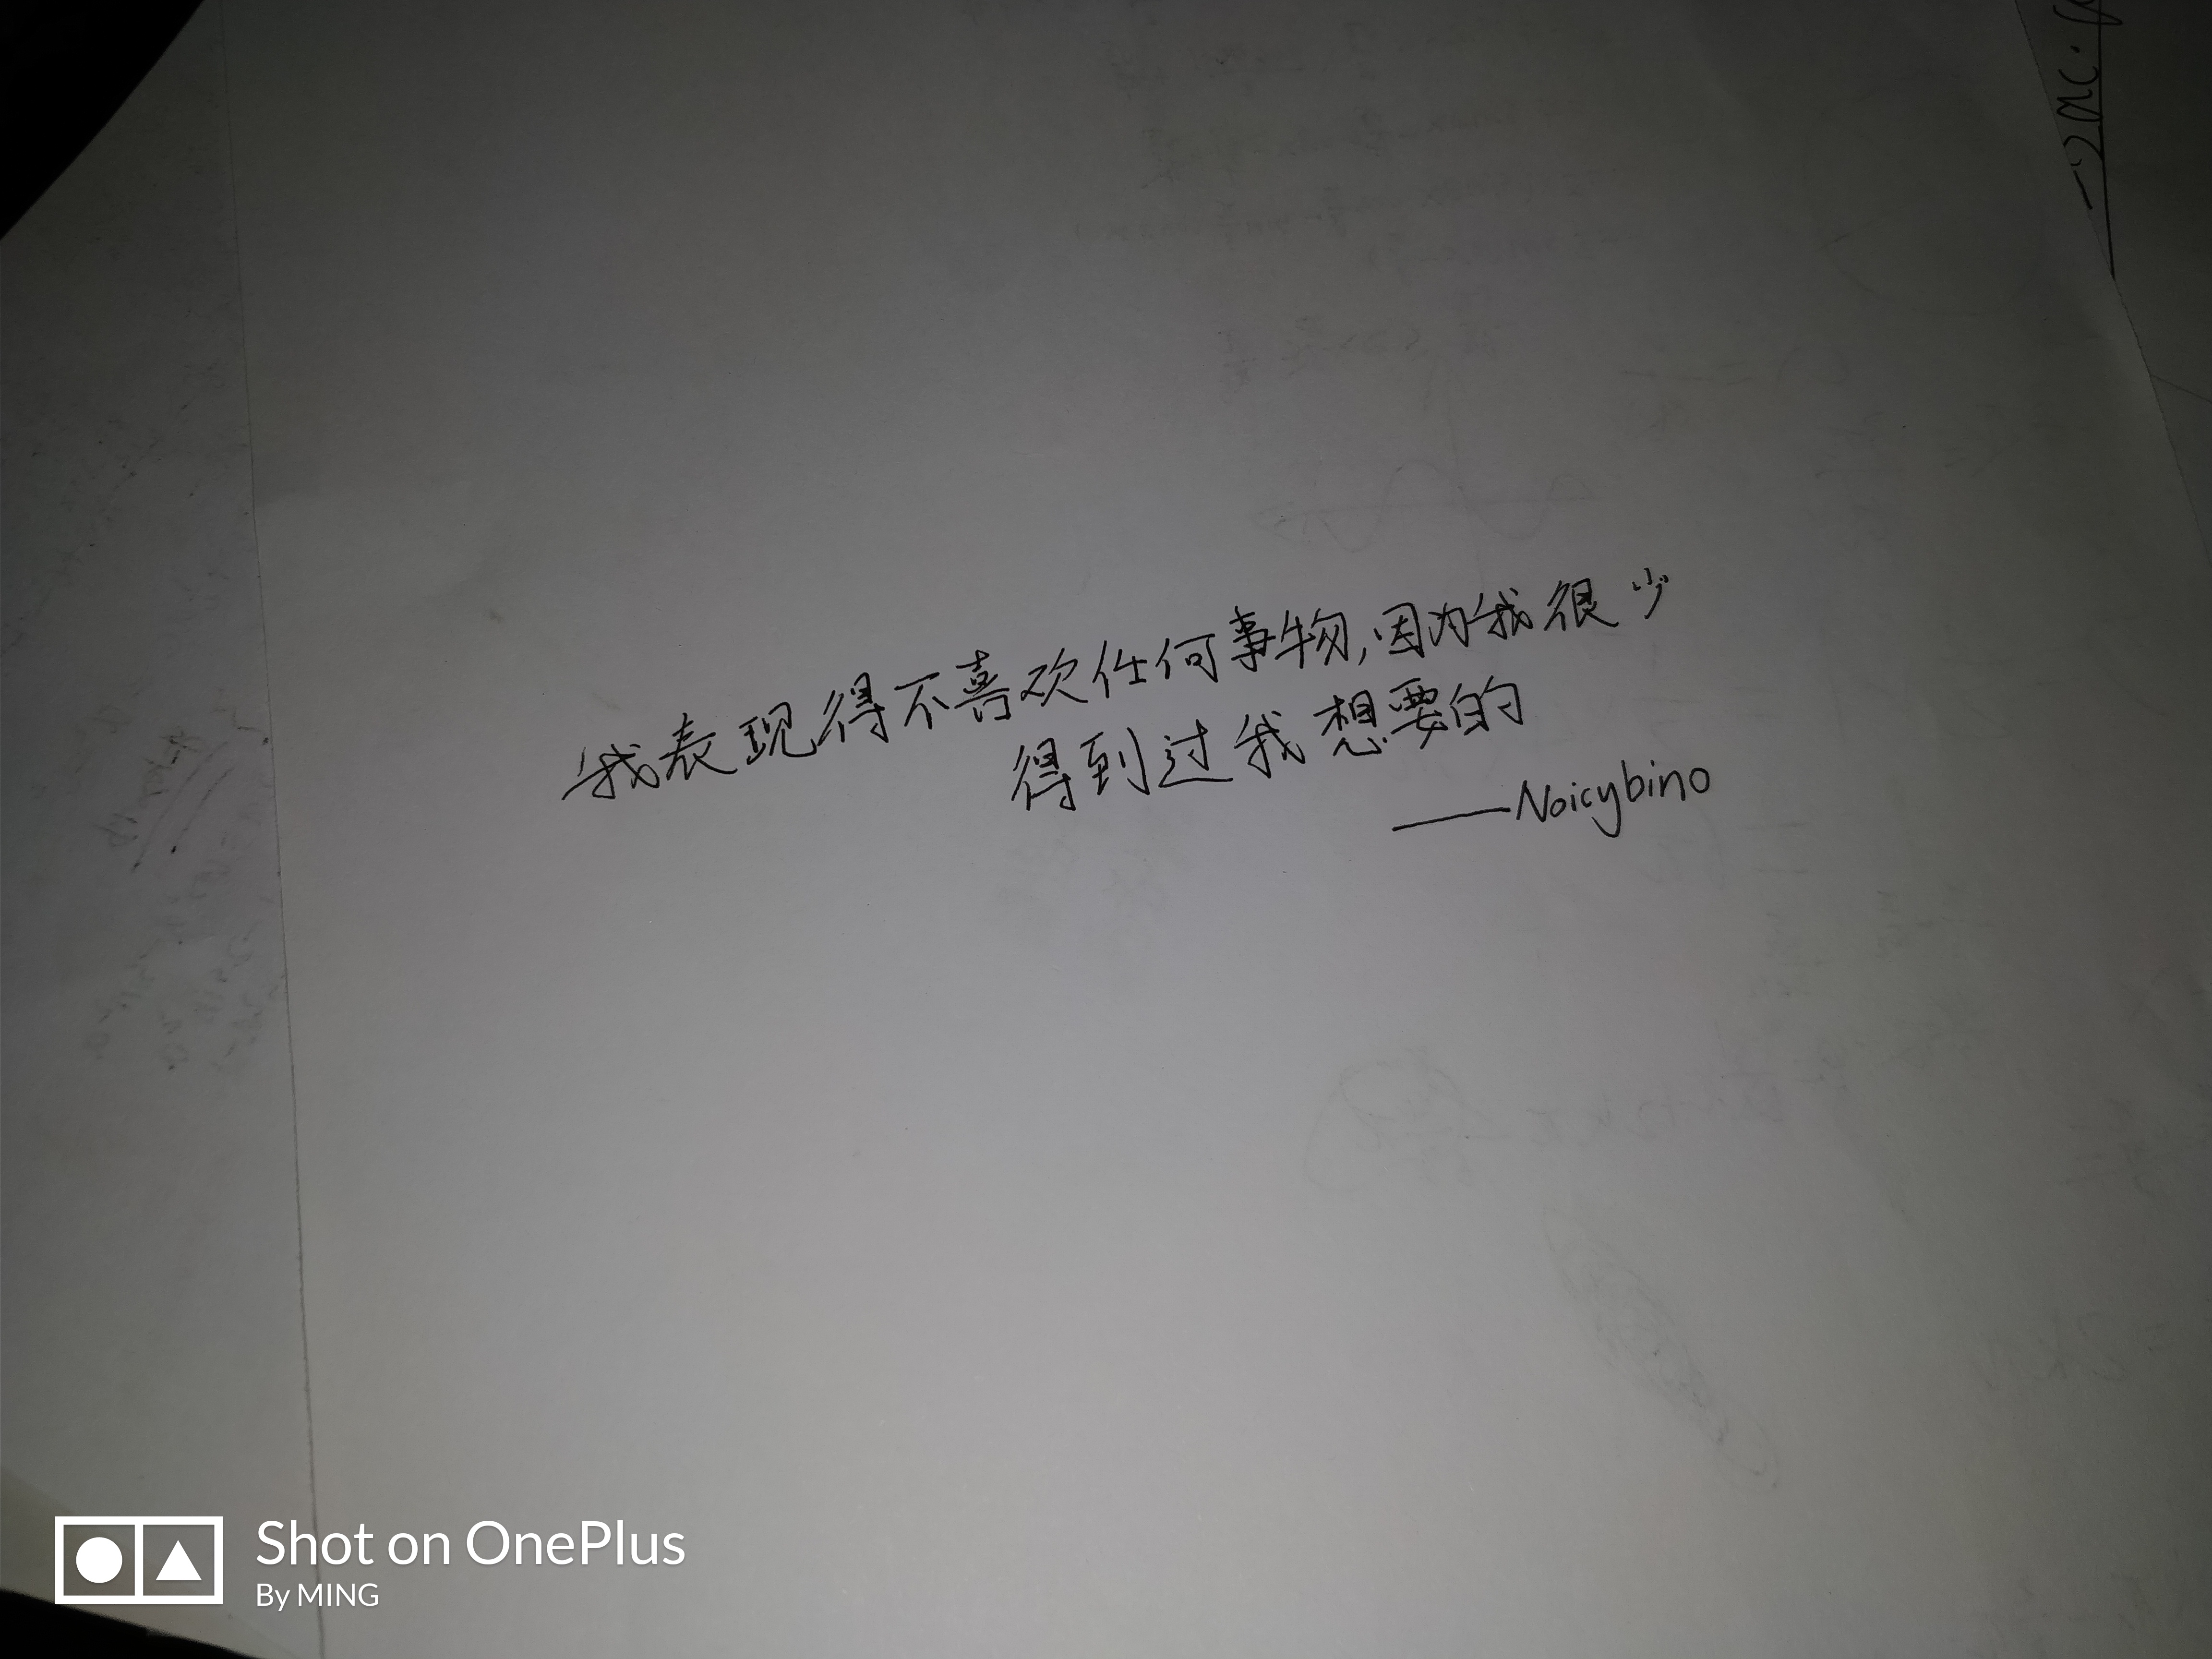 我表现得不喜欢任何事物,因为我很少
得到过我想要的
——Noicybino
Shot on OnePlus
By MING